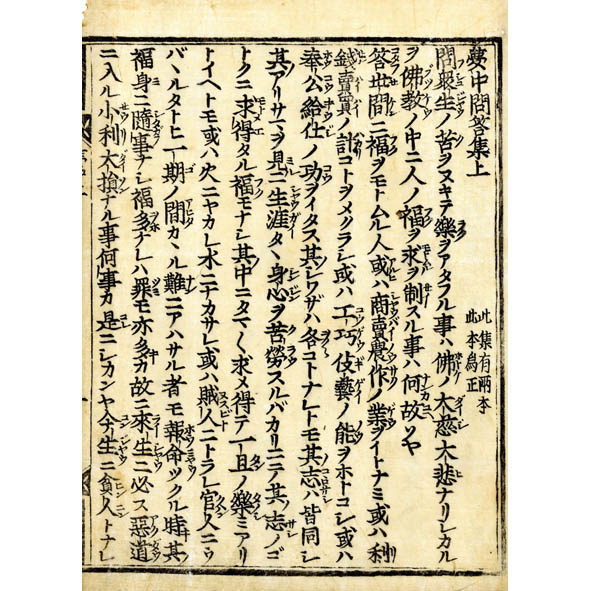 夢中問答集上
此集有兩本
此本為正
問衆生ノ苦ヲヌキテ樂ヲアタフル事ハ佛ノ大慈大悲ナリシカル
ヲ佛教ノ中ニ人ノ福ヲ求ヲ制スル事ハ何故ソヤ
答世間ニ福ヲモトムル人或ハ商賣農作ノ業ヲイトナミ或ハ利
錢賣買ノ計コトヲメクラシ或ハ工巧伎藝ノ能ヲホトコシ或ハ
奉公給仕ノ功ヲイタス其シワザハ各コトナレトモ其志ハ皆同シ
其アリサマヲ見ニ生涯タヽ身心ヲ苦勞スルバカリニテ其ノ志ノゴ
トクニ求得タル福モナシ其中ニタマ〱求メ得テ一旦ノ樂ミアリ
トイヘトモ或ハ火ニヤカレ水ニナカサレ或ハ賊人ニトラレ官人ニウ
バヽルタトヒ一期ノ間カヽル難ニアハサル者モ報命ツクル時其
福身ニ隨事ナシ福多ナレハ罪モ亦多カ故ニ來生ニ必ス惡道
ニ入ル小利大損ナル事何事カ是ニシカンヤ今生ニ貧人トナレ